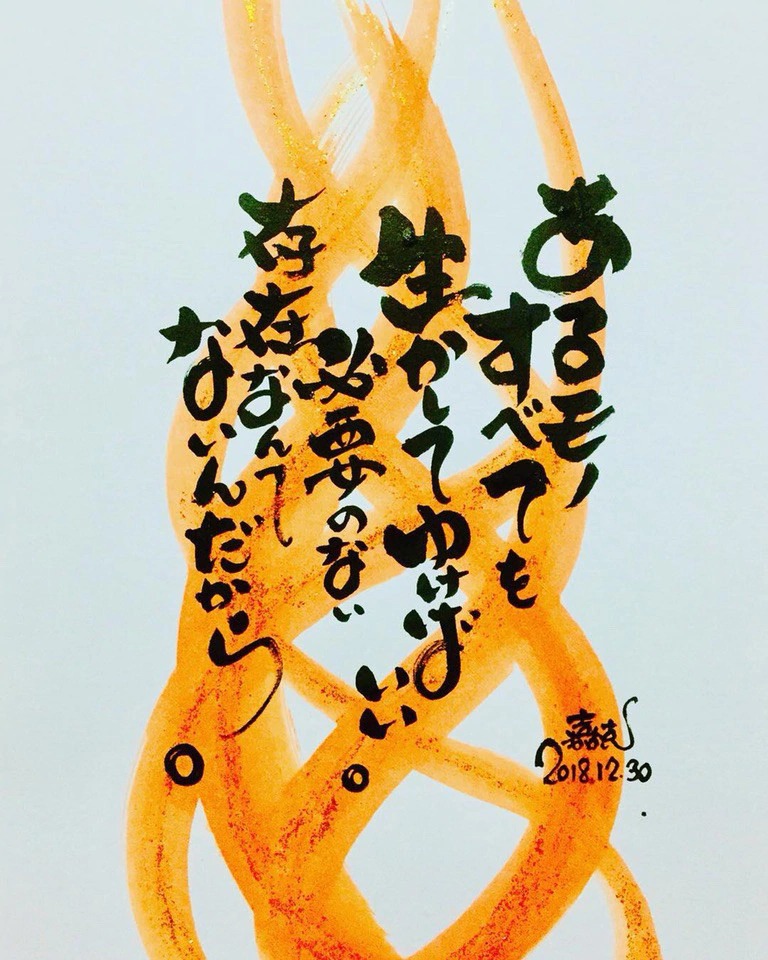 あるモノ
すべてを
生かしてゆけばいい。
必要のない
存在なんて
ないんだから。
2018.12.30